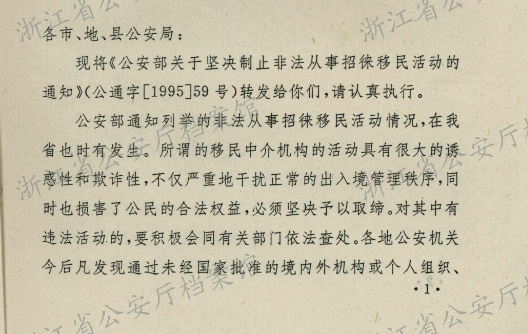 各市、地、县公安局:
现将《公安部关于坚决制止非法从事招徕移民活动的
通知》(公通字[1995]59号)转发给你们,请认真执行。
公安部通知列举的非法从事招徕移民活动情况,在我
省也时有发生。所谓的移民中介机构的活动具有很大的诱
惑性和欺诈性,不仅严重地干扰正常的出入境管理秩序,同
时也损害了公民的合法权益,必须坚决予以取缔。对其中有
违法活动的,要积极会同有关部门依法查处。各地公安机关
今后凡发现通过未经国家批准的境内外机构或个人组织、
·1·
浙江省公安厅档案馆
浙江省公安厅档案馆
浙江省公安厅档案馆